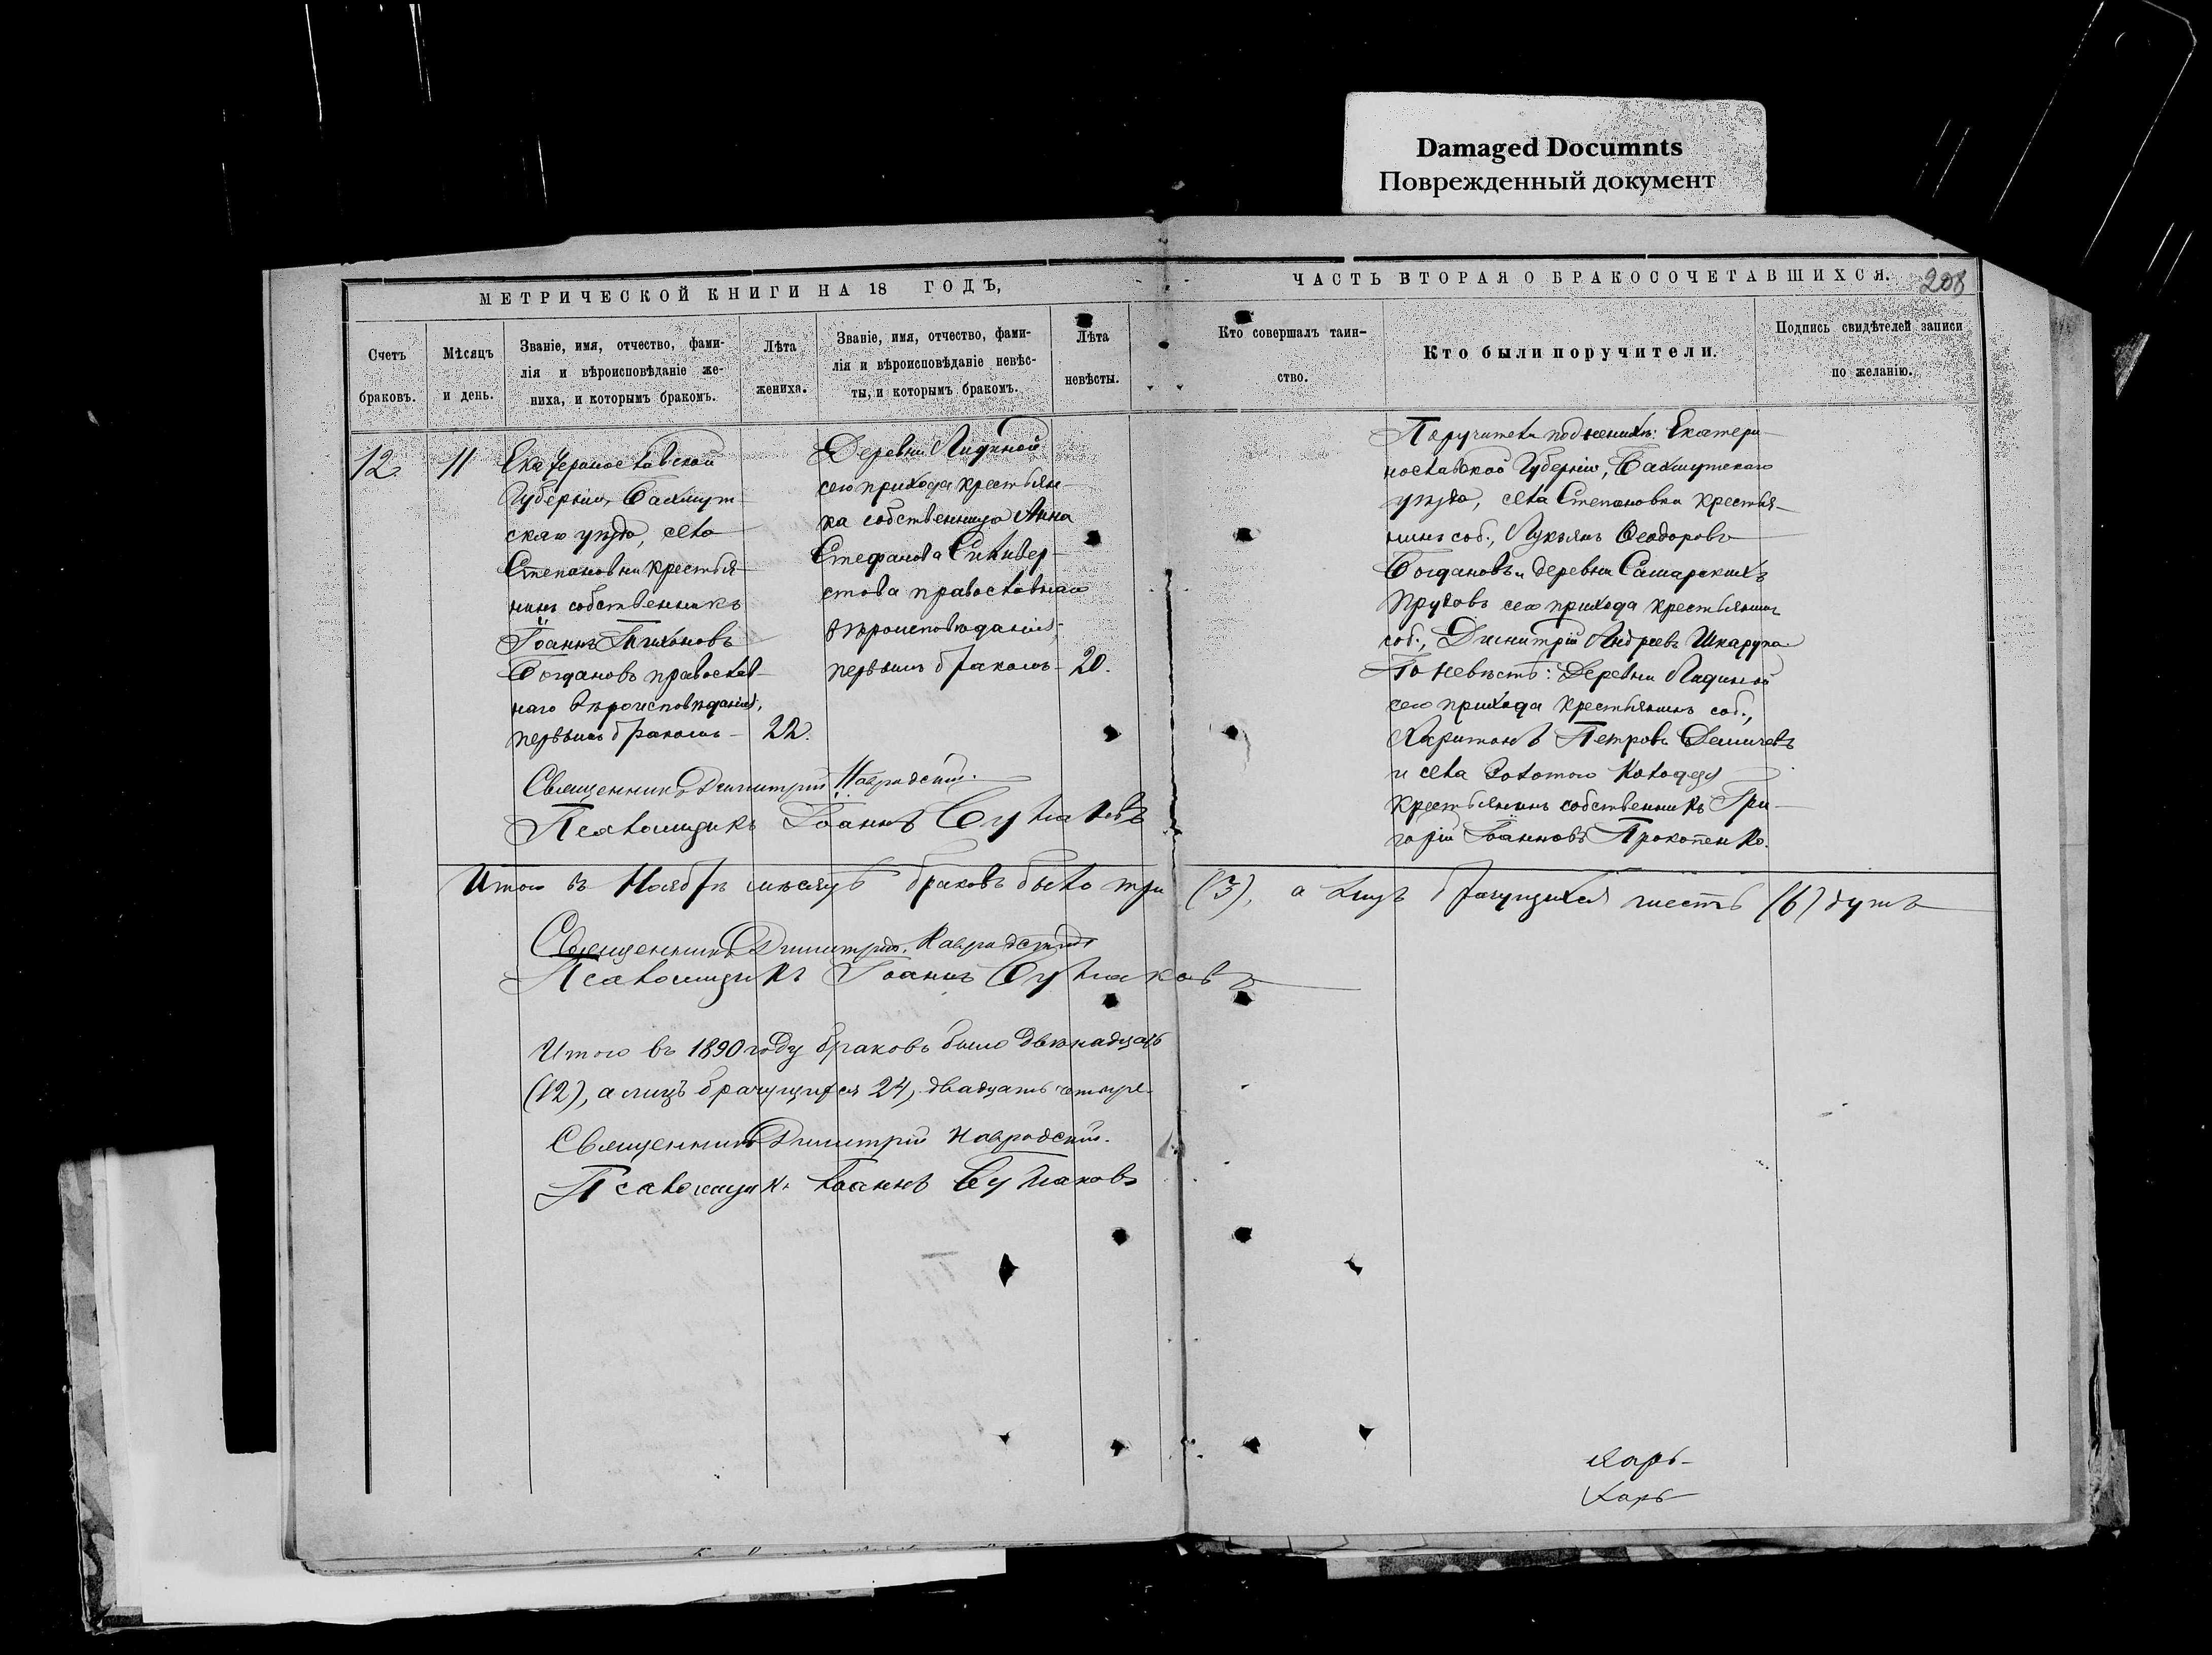 Damaged Documnts
Поврежденный документ
МЕТРИЧЕСКОЙ КНИГИ НА 18 ГОДЪ,
ЧАСТЬ ВТОРАЯ О БРАКОСОЧЕТАВШИХСЯ.
208
Счетъ
браковъ.
Мѣсяцъ
и день.
Званіе, имя, отчество, фами-
лія и вѣроисповѣданіе же-
ниха, и которымъ бракомъ.
Лѣта
жениха.
Званіе, имя, отчество, фами-
лія и вѣроисповѣданіе невѣс-
ты, и которымъ бракомъ.
Лѣта
невѣсты.
Кто совершалъ таин-
ство.
Кто были поручители.
Подпись свидѣтелей записи
по желанію.
12
11
Екатеринославской
Губерніи, Бахмут-
скаго уѣзда, села
Степановки крестья-
нинъ собственникъ
Іоаннъ Тихоновъ
Богдановъ православ-
наго вѣроисповѣданія,
первымъ бракомъ-
22.
Деревни Лидиной
сего прихода крестьян-
ка собственница Анна
Стефанова Силивер-
стова православнаго
вѣроисповѣданія,
первымъ бракомъ-
20.
Поручители по женихѣ: Екатери-
нославской Губерніи, Бахмутскаго
уѣзда, села Степановки крестья-
нинъ соб., Лукьянъ Ѳеодоровъ
Богдановъ и деревни Самарскихъ
Прудовъ сего прихода крестьянинъ
соб., Димитрій Андреевъ Шкарупа.
По невѣстѣ: Деревни Лидиной
сего прихода крестьянинъ соб.,
Харитонъ Петровъ
и села Золотого Колодезя
крестьянинъ собственникъ Гри-
горій Іоанновъ Прокопенко.
Священникъ Димитрій Навродскій.
Псаломщикъ Іоаннъ Булмаковъ
Итого въ Ноябрѣ мѣсяцѣ браковъ было три (3), а лицъ брачущихся шесть (6) душъ
Священникъ Димитрій Навродскій
Псаломщикъ Іоаннъ Булмаковъ
Итого въ 1890 году браковъ было двѣнадцать
(12), а лицъ брачущихся 24, двадцать четыре.
Священникъ Димитрій Навродскій.
Псаломщикъ Іоаннъ Булмаковъ
Харь-
Харь